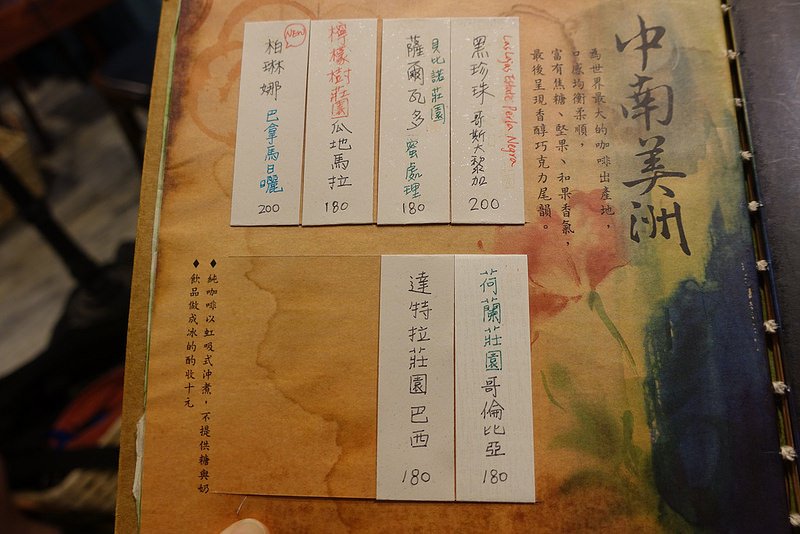 中南美洲
為世界最大的咖啡出產地，
口感均衡柔順，
富有焦糖、堅果、和果香氣，
最後呈現香醇巧克力尾韻。
Las Lajas Estate Perla Negra
黑珍珠 哥斯大黎加
200
貝比諾莊園
薩爾瓦多 蜜處理
180
檸檬樹莊園 瓜地馬拉
180
NEW
柏琳娜 巴拿馬日曬
200
荷蘭莊園哥倫比亞
180
達特拉莊園巴西
180
◆純咖啡以虹吸式沖煮，不提供糖與奶
◆飲品做成冰的酌收十元